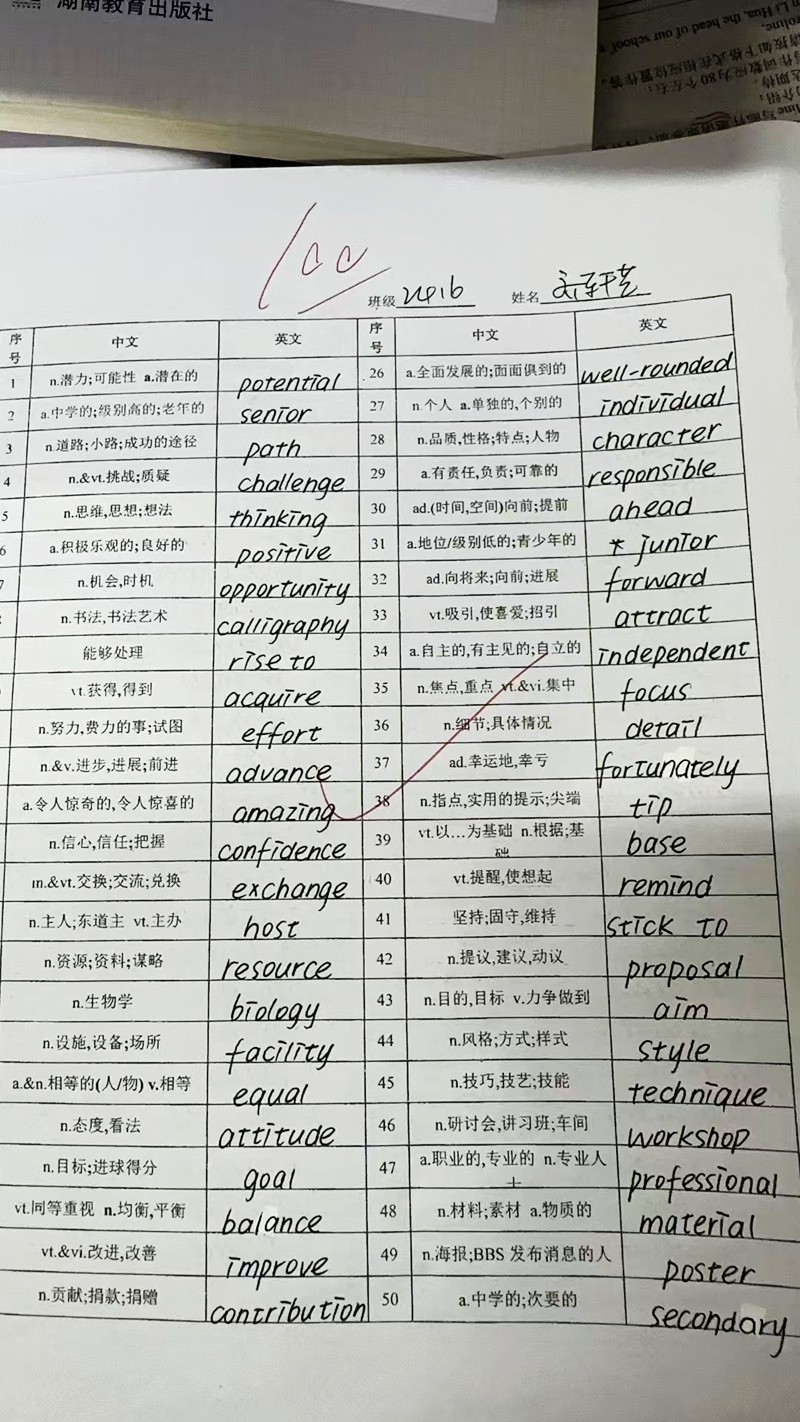 湖南教育出版社
100
班级 2416 姓名
序号 中文 英文 序号 中文 英文
1 n.潜力;可能性 a.潜在的 potential 26 a.全面发展的;面面俱到的 well-rounded
2 a.中学的;级别高的;老年的 senior 27 n.个人 a.单独的,个别的 individual
3 n.道路;小路;成功的途径 path 28 n.品质,性格;特点;人物 character
4 n.&vt.挑战;质疑 challenge 29 a.有责任,负责;可靠的 responsible
5 n.思维,思想;想法 thinking 30 ad.(时间,空间)向前;提前 ahead
6 a.积极乐观的;良好的 positive 31 a.地位/级别低的;青少年的 * junior
n.机会,时机 opportunity 32 ad.向将来;向前;进展 forward
n.书法,书法艺术 calligraphy 33 vt.吸引,使喜爱;招引 attract
能够处理 rise to 34 a.自主的,有主见的;自立的 independent
vt.获得,得到 acquire 35 n.焦点,重点 vt.&vi.集中 focus
n.努力,费力的事;试图 effort 36 n.细节;具体情况 detail
n.&v.进步,进展;前进 advance 37 ad.幸运地,幸亏 fortunately
a.令人惊奇的,令人惊喜的 amazing 38 n.指点,实用的提示;尖端 tip
n.信心,信任;把握 confidence 39 vt.以…为基础 n.根据;基础 base
n.&vt.交换;交流;兑换 exchange 40 vt.提醒,使想起 remind
n.主人;东道主 vt.主办 host 41 坚持;固守,维持 stick to
n.资源;资料;谋略 resource 42 n.提议,建议,动议 proposal
n.生物学 biology 43 n.目的,目标 v.力争做到 aim
n.设施,设备;场所 facility 44 n.风格;方式;样式 style
a.&n.相等的(人/物) v.相等 equal 45 n.技巧,技艺;技能 technique
n.态度,看法 attitude 46 n.研讨会,讲习班;车间 workshop
n.目标;进球得分 goal 47 a.职业的,专业的 n.专业人士 professional
vt.同等重视 n.均衡,平衡 balance 48 n.材料;素材 a.物质的 material
vt.&vi.改进,改善 improve 49 n.海报;BBS 发布消息的人 poster
n.贡献;捐款;捐赠 contribution 50 a.中学的;次要的 secondary